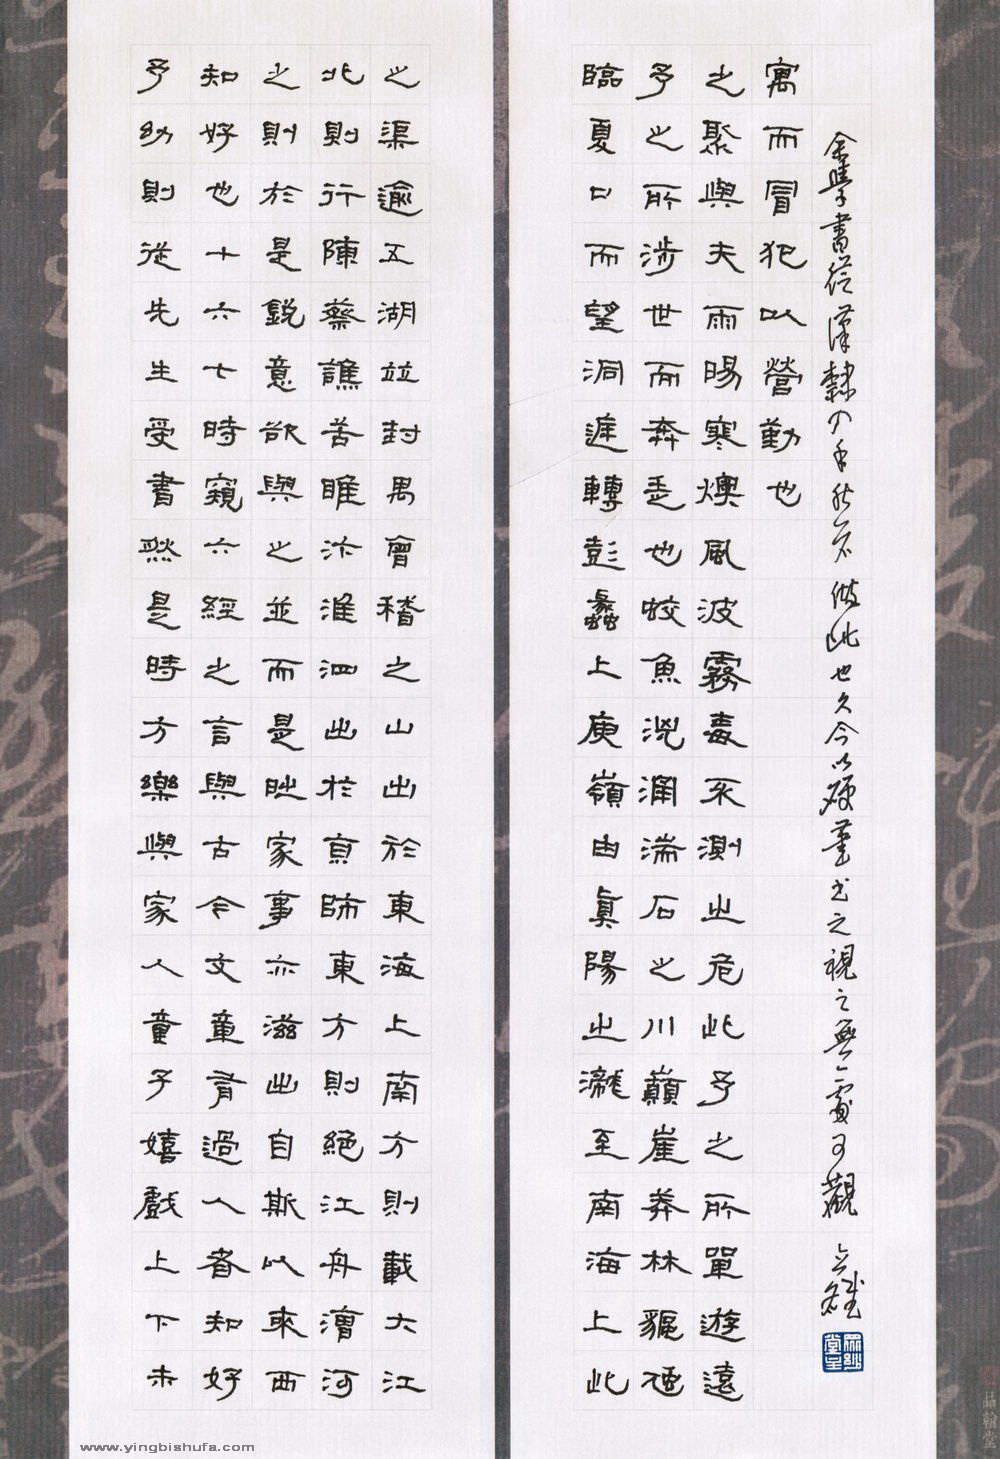 予幼則從先生受書然是時方樂與家人童子嬉戲上下未
知好也十六七時窺六經之言與古今文章有過人者知好
之則於是銳意欲與之並而是時家事亦滋出自斯以來西
北則行陳蔡譙苦睢汴淮泗出於京師東方則絕江舟漕河
之渠逾五湖並封禺會稽之山出於東海上南方則載大江
臨夏口而望洞庭轉彭蠡上庾嶺由真陽之瀧至南海上此
予之所涉世而奔走也蛟魚洶湧湍石之川巔崖莽林貙虺
之聚與夫雨暘寒燠風波霧毒不測之危此予之所單遊遠
寓而冒犯以營勤也
余學書從漢隸 做此也久今以硬筆書之視之無一處可觀
品翰堂
www.yingbishufa.com